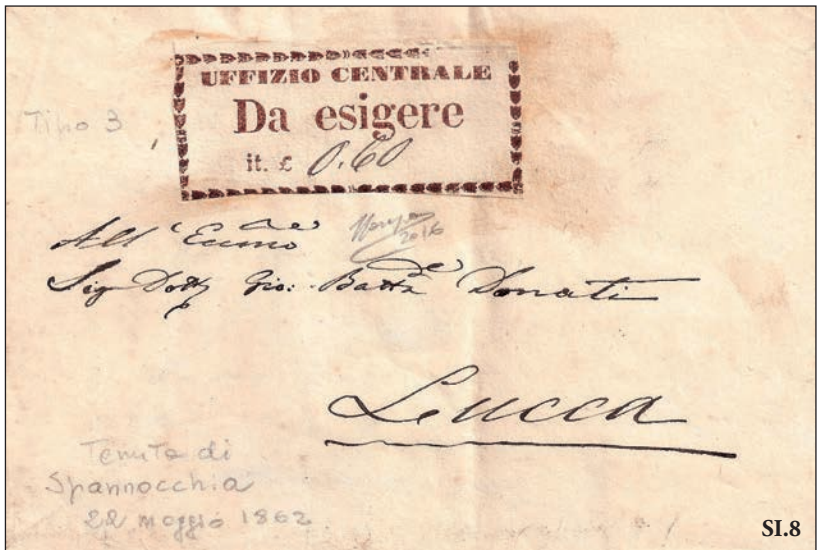 UFFIZIO CENTRALE
Da esigere
it. £ 0.60
Tipo 3
All'Ecc̃mo
2016
Sig Dott Gio: Batta Donati
Lucca
Tenuta di
Spannocchia
22 maggio 1862
SI.8